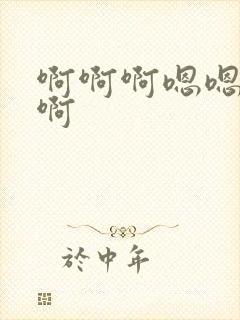 啊啊啊嗯嗯
啊
於中年